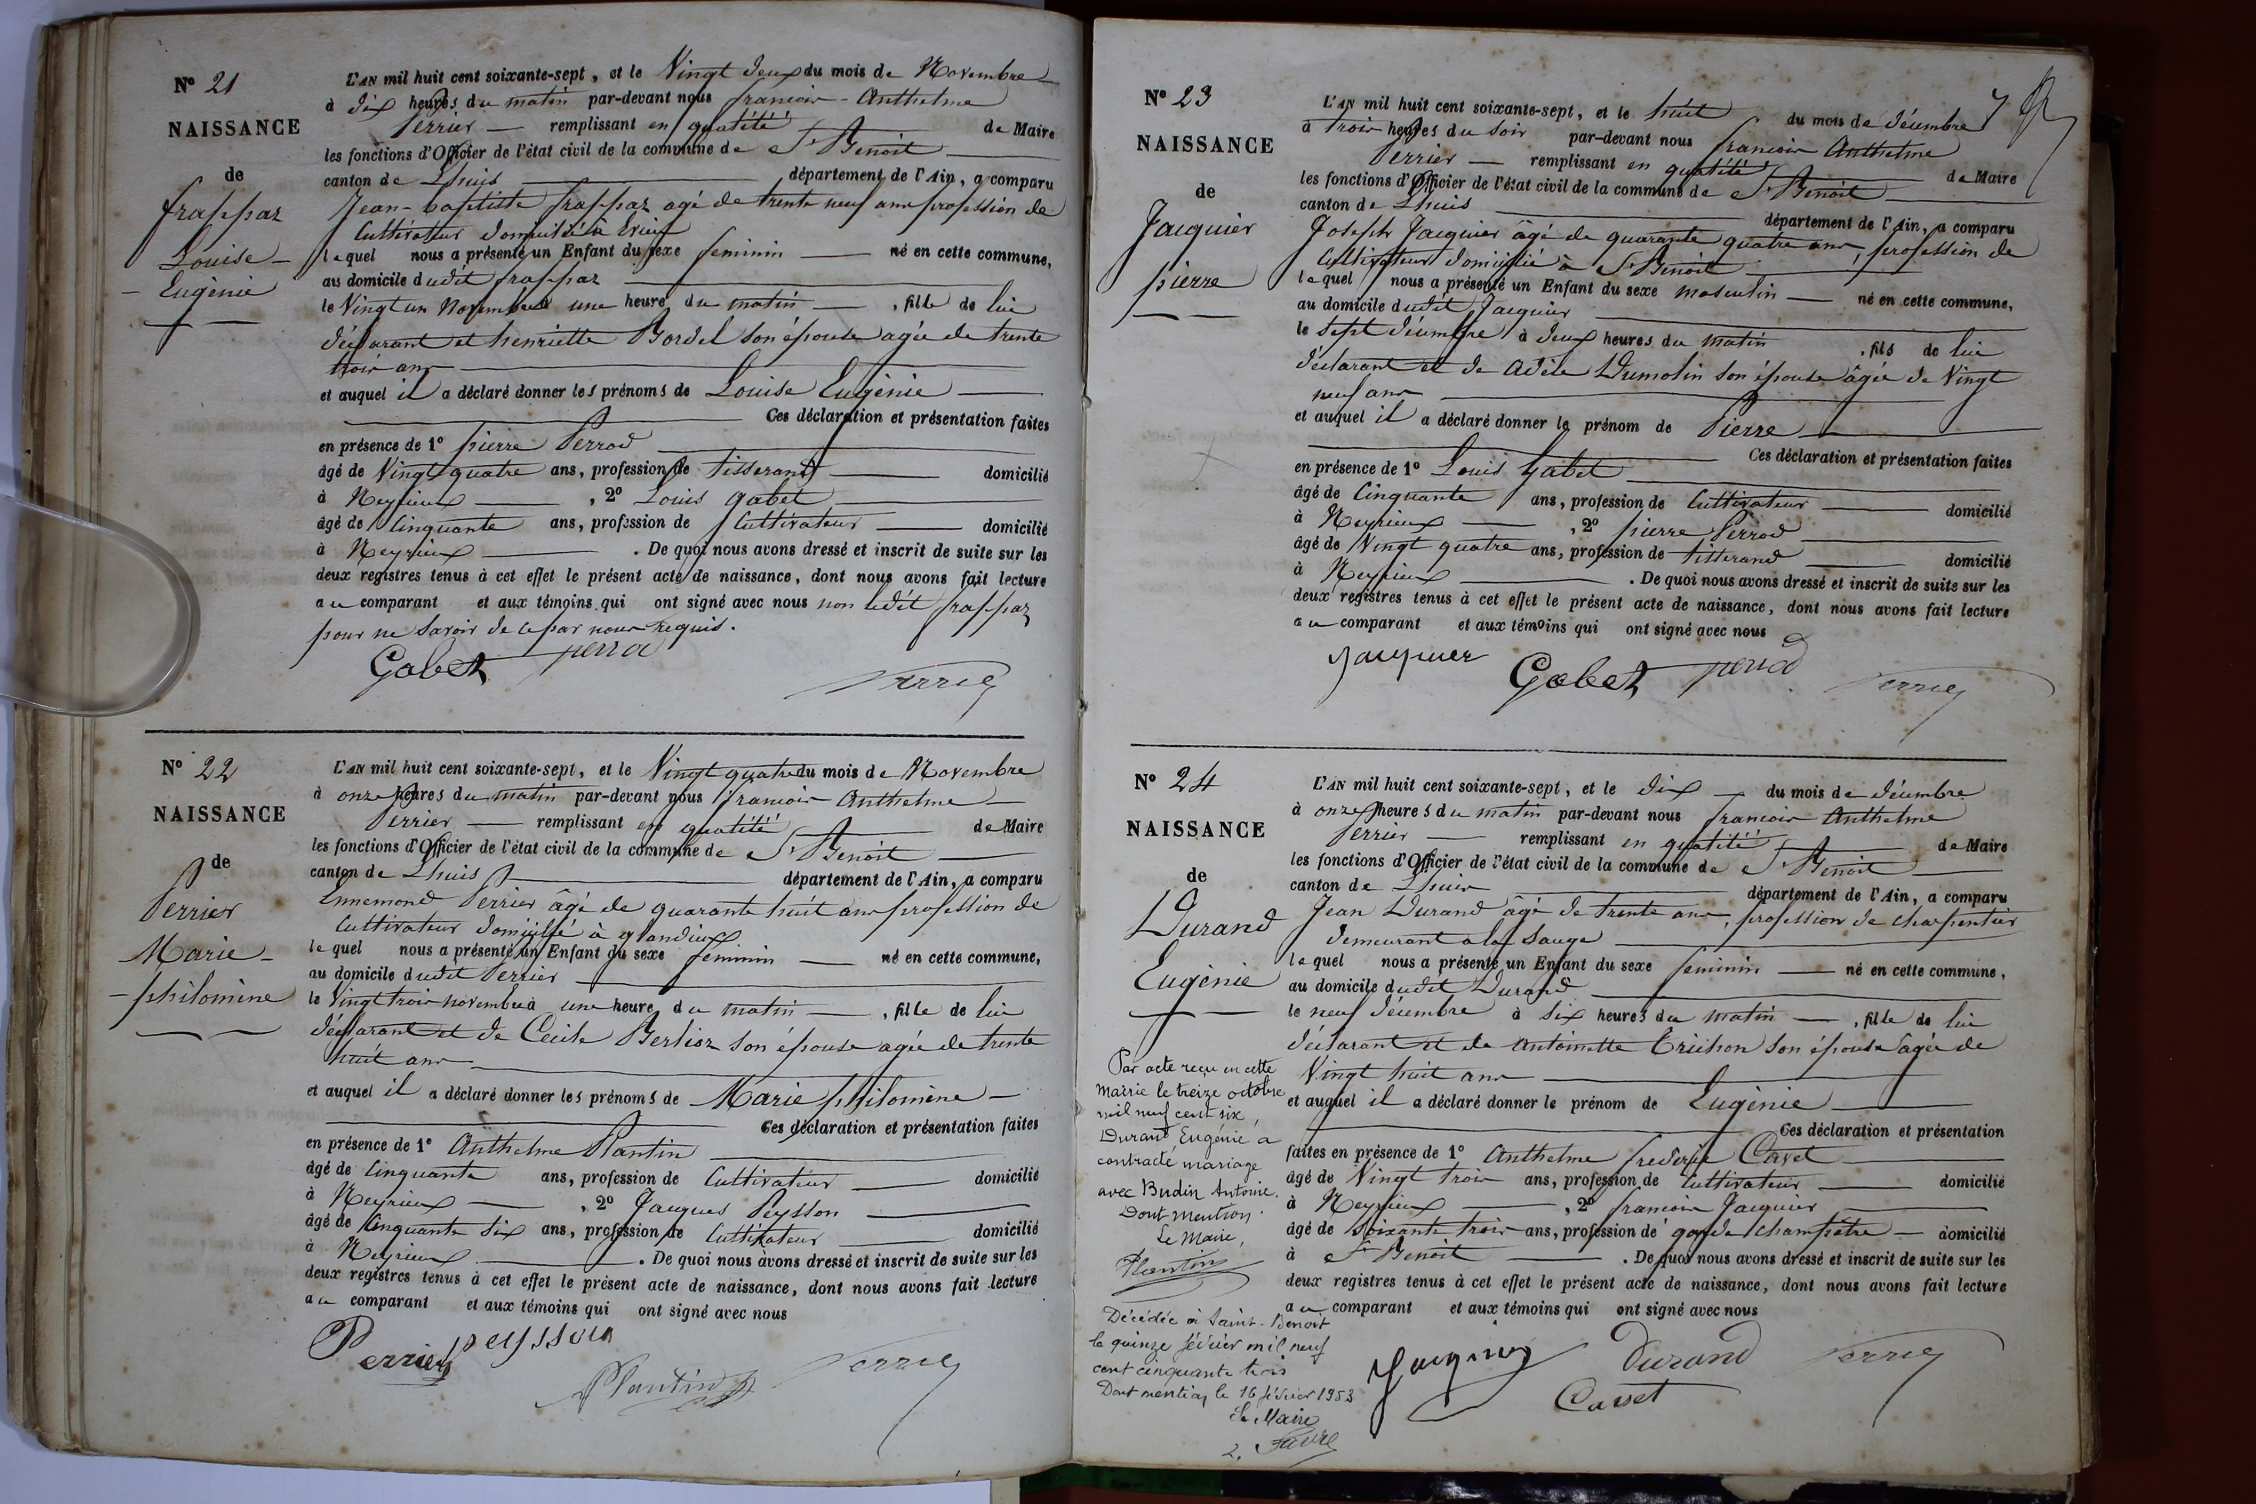 Nº 21
NAISSANCE
de
frappaz
Louise -
- Eugènie
L'AN mil huit cent soixante-sept, et le Vingt deux du mois de Novembre
à dix heures du matin par-devant nous francois - Anthelme
Perrier — remplissant en qualité de Maire
les fonctions d'Officier de l'état civil de la commune de St Benoit
canton de Lhuis département de l'Ain, a comparu
Jean-baptiste frappaz agé de trente neuf ans profession de
Cultivateur domicilié à
lequel nous a présenté un Enfant du sexe feminin né en cette commune,
au domicile dudit frappaz
le Vingt un Novembre à une heure du matin, fille de lui
déclarant et henriette Bordel son épouse agée de trente
trois ans
et auquel il a déclaré donner les prénoms de Louise Eugènie
Ces déclaration et présentation faites
en présence de 1º pierre Perrod
âgé de Vingt quatre ans, profession de tisserand domicilié
à Neyrieux, 2º Louis gabet
âgé de Cinquante ans, profession de Cultivateur domicilié
à Neyrieux. De quoi nous avons dressé et inscrit de suite sur les
deux registres tenus à cet effet le présent acte de naissance, dont nous avons fait lecture
au comparant et aux témoins qui ont signé avec nous non ledit frappaz
pour ne savoir de ce par nous requis.
Gabet perrod
Perrier
Nº 22
NAISSANCE
de
Perrier
Marie -
- philomène
L'AN mil huit cent soixante-sept, et le Vingt quatre du mois de Novembre
à onze heures du matin par-devant nous francois Anthelme
Perrier — remplissant en qualité de Maire
les fonctions d'Officier de l'état civil de la commune de St Benoit
canton de Lhuis département de l'Ain, a comparu
Ennemond Perrier âgé de quarante huit ans profession de
Cultivateur domicilié à glandieux
lequel nous a présenté un Enfant du sexe feminin né en cette commune,
au domicile dudit Perrier
le Vingt trois novembre à une heure du matin, fille de lui
déclarant et de Cecile Berlioz son épouse agée de trente
huit ans
et auquel il a déclaré donner les prénoms de Marie philomène -
Ces déclaration et présentation faites
en présence de 1º Anthelme Plantin
âgé de Cinquante ans, profession de Cultivateur domicilié
à Neyrieux, 2º Jacques Peysson
âgé de Cinquante six ans, profession de Cultivateur domicilié
à Neyrieux. De quoi nous avons dressé et inscrit de suite sur les
deux registres tenus à cet effet le présent acte de naissance, dont nous avons fait lecture
au comparant et aux témoins qui ont signé avec nous
Perrier peysson
Plantin Perrier
7
Nº 23
NAISSANCE
de
Jacquier
pierre
L'AN mil huit cent soixante-sept, et le huit du mois de décembre
à trois heures du soir par-devant nous francois Anthelme
Perrier — remplissant en qualité de Maire
les fonctions d'Officier de l'état civil de la commune de St Benoit
canton de Lhuis département de l'Ain, a comparu
Joseph Jacquier âgé de quarante quatre ans, profession de
Cultivateur domicilié à St Benoit
lequel nous a présenté un Enfant du sexe masculin né en cette commune,
au domicile dudit Jacquier
le sept décembre à deux heures du matin, fils de lui
déclarant et de Adèle Dumolin son épouse âgée de Vingt
neuf ans
et auquel il a déclaré donner le prénom de Pierre
Ces déclaration et présentation faites
en présence de 1º Louis Gabet
âgé de Cinquante ans, profession de Cultivateur domicilié
à Neyrieux, 2º pierre Perrod
âgé de Vingt quatre ans, profession de tisserand domicilié
à Neyrieux. De quoi nous avons dressé et inscrit de suite sur les
deux registres tenus à cet effet le présent acte de naissance, dont nous avons fait lecture
au comparant et aux témoins qui ont signé avec nous
Jacquier Gabet perrod Perrier
Nº 24
NAISSANCE
de
Durand
Eugènie
L'AN mil huit cent soixante-sept, et le dix du mois de décembre
à onze heures du matin par-devant nous francois Anthelme
Perrier — remplissant en qualité de Maire
les fonctions d'Officier de l'état civil de la commune de St Benoit
canton de Lhuis département de l'Ain, a comparu
Jean Durand âgé de trente ans, profession de charpentier
demeurant a la Sauge
lequel nous a présenté un Enfant du sexe feminin né en cette commune,
au domicile dudit Durand
le neuf décembre à six heures du matin, fille de lui
déclarant et de Antoinette son épouse âgée de
Vingt huit ans
et auquel il a déclaré donner le prénom de Eugènie
Ces déclaration et présentation
faites en présence de 1º Anthelme frederic Cavet
âgé de Vingt trois ans, profession de Cultivateur domicilié
à Neyrieux, 2º francois Jacquier
âgé de Soixante trois ans, profession de garde champêtre domicilié
à St Benoit. De quoi nous avons dressé et inscrit de suite sur les
deux registres tenus à cet effet le présent acte de naissance, dont nous avons fait lecture
au comparant et aux témoins qui ont signé avec nous
Jacquier Durand Perrier
Cavet
Par acte reçu en cette
mairie le treize octobre
mil neuf cent six,
Durand Eugénie a
contracté mariage
avec Budin Antoine.
Dont mention.
Le Maire,
Plantin
Décédée à Saint-Benoit
le quinze février mil neuf
cent cinquante trois
Dont mention, le 16 février 1953
Le Maire
L. Favre